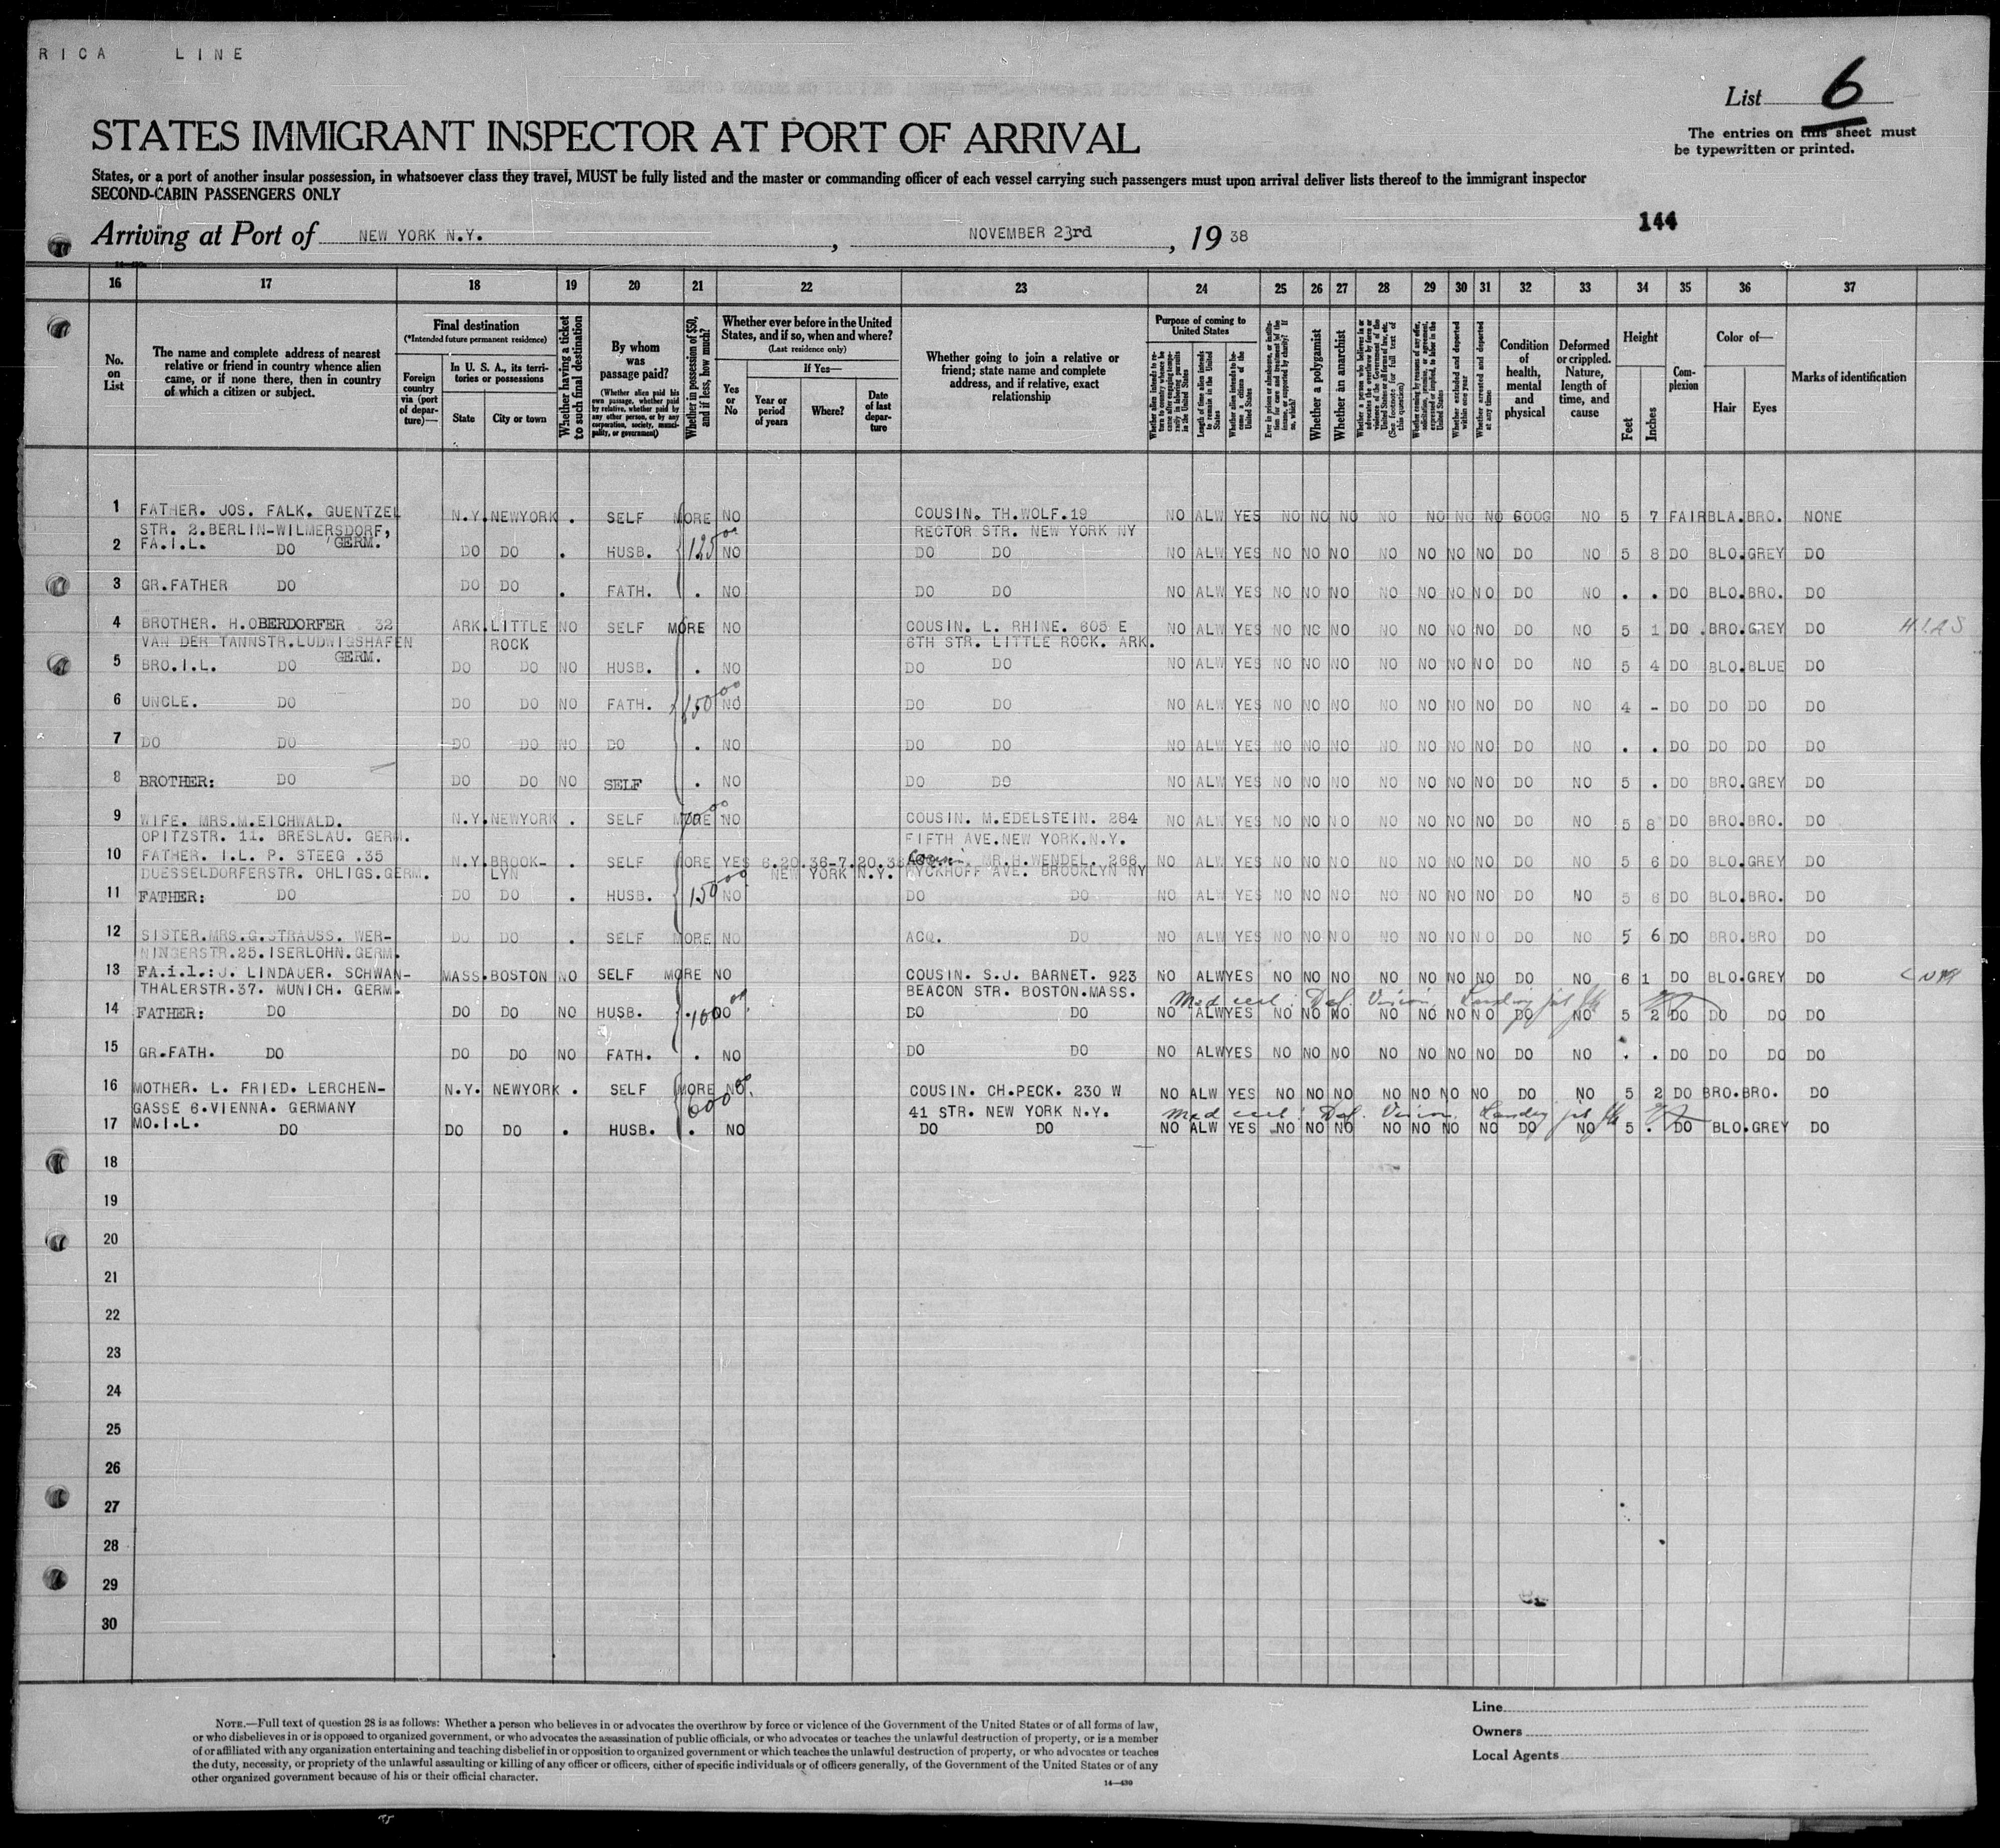 RICA LINE
List 6
STATES IMMIGRANT INSPECTOR AT PORT OF ARRIVAL
The entries on this sheet must
be typewritten or printed.
States, or a port of another insular possession, in whatsoever class they travel, MUST be fully listed and the master or commanding officer of each vessel carrying such passengers must upon arrival deliver lists thereof to the immigrant inspector
SECOND-CABIN PASSENGERS ONLY
144
Arriving at Port of NEW YORK N.Y. , NOVEMBER 23rd , 19 38
16 17 18 19 20 21 22 23 24 25 26 27 28 29 30 31 32 33 34 35 36 37
No. on List
The name and complete address of nearest relative or friend in country whence alien came, or if none there, then in country of which a citizen or subject.
Final destination
(*Intended future permanent residence)
Foreign country via (port of departure)—
In U. S. A., its territories or possessions
State
City or town
Whether having a ticket to such final destination
By whom was passage paid?
(Whether alien paid his own passage, whether paid by relative, whether paid by any other person, or by any corporation, society, municipality, or government)
Whether in possession of $50, and if less, how much?
Whether ever before in the United States, and if so, when and where?
(Last residence only)
Yes or No
If Yes—
Year or period of years
Where?
Date of last departure
Whether going to join a relative or friend; state name and complete address, and if relative, exact relationship
Purpose of coming to United States
Length of time alien intends to remain in the United States
Whether alien intends to become a citizen of the United States
Whether a polygamist
Whether an anarchist
Whether excluded and deported within one year
Whether arrested and deported at any time
Condition of health, mental and physical
Deformed or crippled. Nature, length of time, and cause
Height
Feet
Inches
Complexion
Color of—
Hair
Eyes
Marks of identification
1 FATHER. JOS. FALK. GUENTZEL N.Y. NEWYORK . SELF MORE NO COUSIN. TH.WOLF.19 NO ALW YES NO NO NO NO NO NO NO GOOG NO 5 7 FAIR BLA. BRO. NONE
STR. 2.BERLIN-WILMERSDORF, GERM. RECTOR STR. NEW YORK NY
2 FA.I.L. DO DO DO . HUSB. 125 00 NO DO DO NO ALW YES NO NO NO NO NO NO NO DO NO 5 8 DO BLO. GREY DO
3 GR.FATHER DO DO DO . FATH. . NO DO DO NO ALW YES NO NO NO NO NO NO NO DO NO . . DO BLO. BRO. DO
4 BROTHER. H.OBERDORFER 32 ARK. LITTLE NO SELF MORE NO COUSIN. L. RHINE. 605 E NO ALW YES NO NO NO NO NO NO NO DO NO 5 1 DO . BRO. GREY DO HIAS
VAN DER TANNSTR.LUDWIGSHAFEN GERM. ROCK 6TH STR. LITTLE ROCK. ARK.
5 BRO.I.L. DO DO DO NO HUSB. . NO DO DO NO ALW YES NO NO NO NO NO NO NO DO NO 5 4 DO BLO. BLUE DO
6 UNCLE. DO DO DO NO FATH. 150 00 NO DO DO NO ALW YES NO NO NO NO NO NO NO DO NO 4 - DO DO DO DO
7 DO DO DO DO NO DO . NO DO DO NO ALW YES NO NO NO NO NO NO NO DO NO . . DO DO DO DO
8 BROTHER: DO DO DO NO SELF . NO DO DO NO ALW YES NO NO NO NO NO NO NO DO NO 5 . DO BRO. GREY DO
9 WIFE. MRS.M.EICHWALD. N.Y. NEWYORK . SELF MORE NO COUSIN. M.EDELSTEIN. 284 NO ALW YES NO NO NO NO NO NO NO DO NO 5 8 DO BRO. BRO. DO
OPITZSTR. 11. BRESLAU. GERM. FIFTH AVE.NEW YORK.N.Y.
10 FATHER. I.L. P. STEEG .35 N.Y. BROOK- . SELF MORE YES 6.20.36-7.20.38 Cousin. MR.H.WENDEL. 266 NO ALW YES NO NO NO NO NO NO NO DO NO 5 6 DO BLO. GREY DO
DUESSELDORFERSTR. OHLIGS.GERM. LYN NEW YORK N.Y. WYCKHOFF AVE. BROOKLYN NY
11 FATHER: DO DO DO . HUSB. 150 00 NO DO DO NO ALW YES NO NO NO NO NO NO NO DO NO 5 6 DO BLO. BRO. DO
12 SISTER.MRS.G.STRAUSS. WER- DO DO . SELF MORE NO ACQ. DO NO ALW YES NO NO NO NO NO NO NO DO NO 5 6 DO BRO. BRO DO
NINGERSTR.25.ISERLOHN.GERM.
13 FA.i.l.:J. LINDAUER. SCHWAN- MASS. BOSTON NO SELF MORE NO COUSIN. S.J. BARNET. 923 NO ALW YES NO NO NO NO NO NO NO DO NO 6 1 DO BLO. GREY DO
THALERSTR.37. MUNICH. GERM. BEACON STR. BOSTON.MASS.
Med cert: Def. Vision.
14 FATHER: DO DO DO NO HUSB. . 100 00 NO DO DO NO ALW YES NO NO NO NO NO NO NO DO NO 5 2 DO DO DO DO
15 GR.FATH. DO DO DO NO FATH. . NO DO DO NO ALW YES NO NO NO NO NO NO NO DO NO . . DO DO DO DO
16 MOTHER. L. FRIED. LERCHEN- N.Y. NEWYORK . SELF MORE NO. COUSIN. CH.PECK. 230 W NO ALW YES NO NO NO NO NO NO NO DO NO 5 2 DO BRO. BRO. DO
GASSE 6.VIENNA. GERMANY 600 00 41 STR. NEW YORK N.Y. Med cert: Def. Vision.
17 MO.I.L. DO DO DO . HUSB. . NO DO DO NO ALW YES NO NO NO NO NO NO NO DO NO 5 . DO BLO. GREY DO
18
19
20
21
22
23
24
25
26
27
28
29
30
Line
Owners
Local Agents
NOTE.—Full text of question 28 is as follows: Whether a person who believes in or advocates the overthrow by force or violence of the Government of the United States or of all forms of law,
or who disbelieves in or is opposed to organized government, or who advocates the assassination of public officials, or who advocates or teaches the unlawful destruction of property, or is a member
of or affiliated with any organization entertaining and teaching disbelief in or opposition to organized government or which teaches the unlawful destruction of property, or who advocates or teaches
the duty, necessity, or propriety of the unlawful assaulting or killing of any officer or officers, either of specific individuals or of officers generally, of the Government of the United States or of any
other organized government because of his or their official character.
14—430